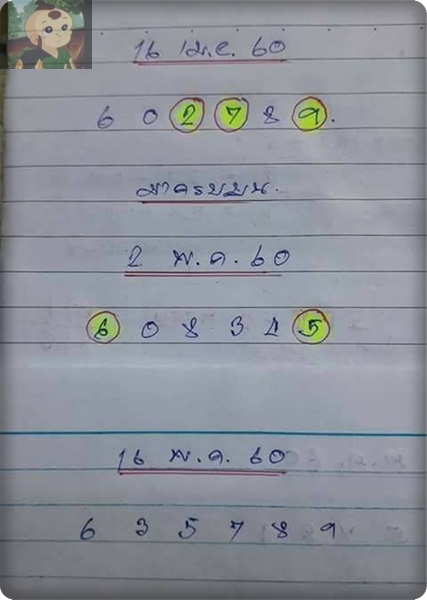 16 เม.ย. 60
6 0 2 7 8 9.
มาครบบน.
2 พ.ค. 60
6 0 8 3 4 5
16 พ.ค. 60
6 3 5 7 8 9